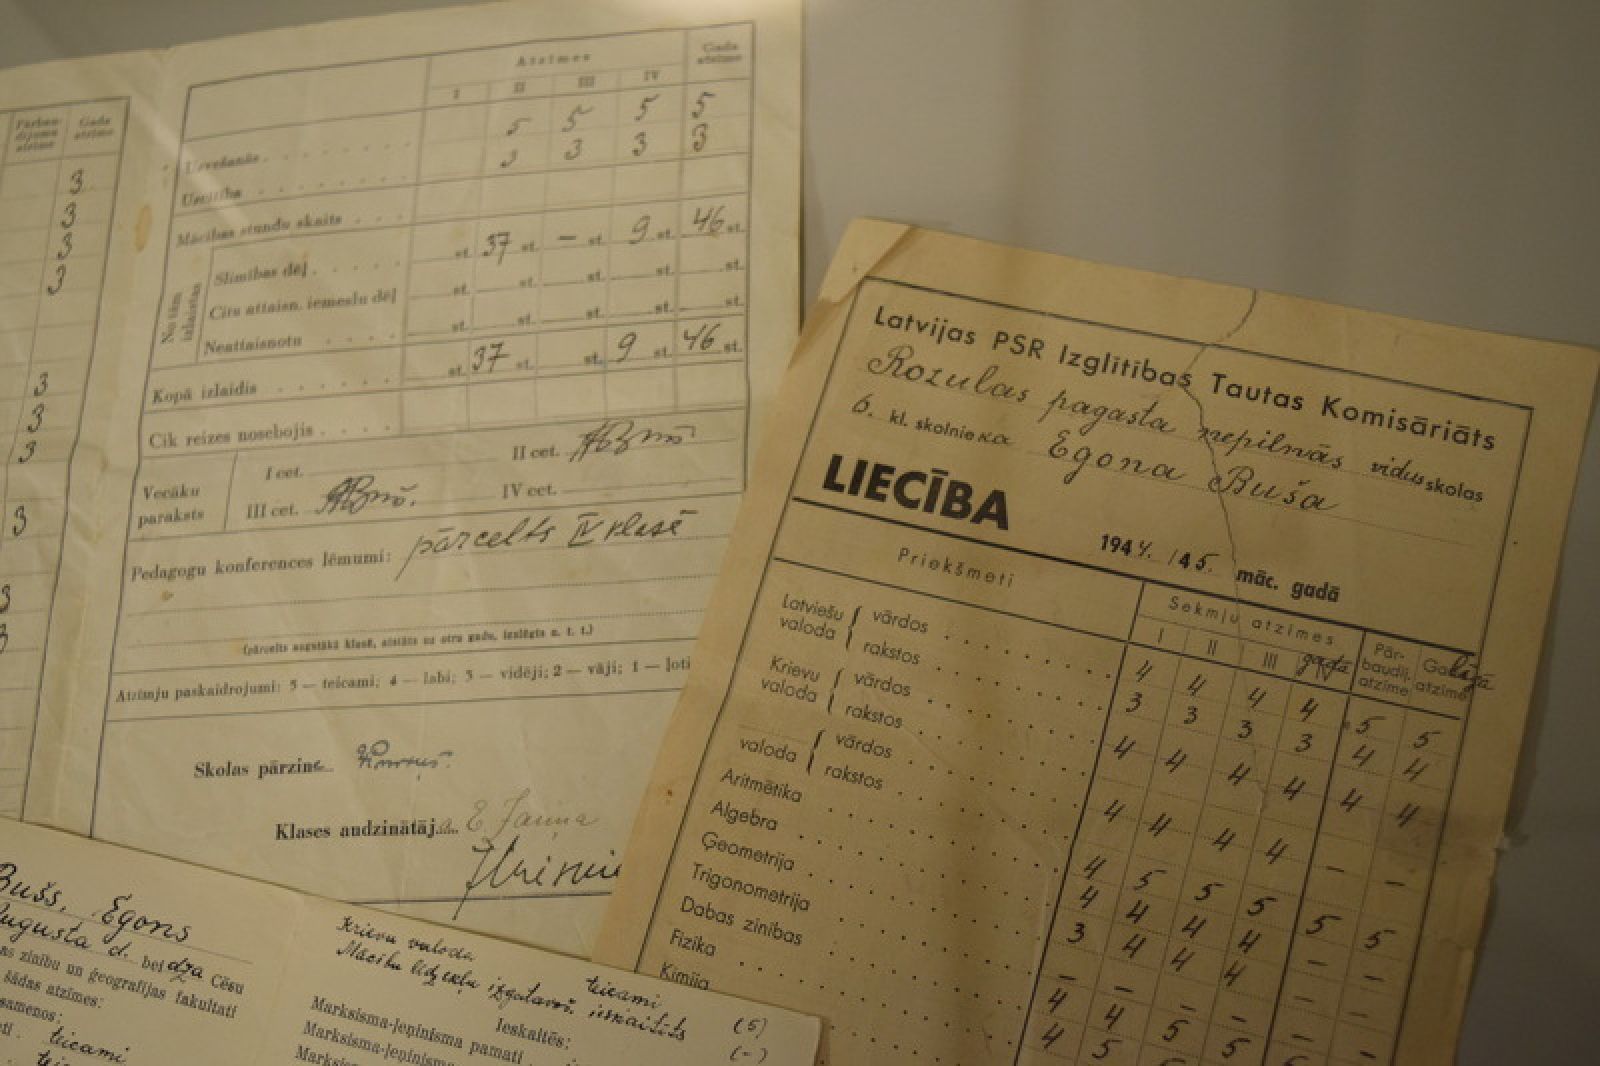 Pārbau-
dījuma
atzīme
Gada
atzīme
3
3
3
3
3
3
3
3
3
3
Atzīmes
Gada
atzīme
I II III IV
Uzvešanās 5 5 5 5
Uzcītība 3 3 3 3
Mācības stundu skaits
No tām
izlaistas
Slimības dēļ st. 37 st. – st. 9 st. 46 st.
Citu attaisn. iemeslu dēļ st. st. st. st. st.
Neattaisnotu st. st. st. st. st.
Kopā izlaidis st. 37 st. st. 9 st. 46 st.
Cik reizes nosebojis
Vecāku
paraksts
I cet. II cet.
III cet. IV cet.
Pedagogu konferences lēmumi: pārcelts IV klasē
(pārcelts augstākā klasē, atstāts uz otru gadu, izslēgts u. t. t.)
Atzīmju paskaidrojumi: 5 — teicami; 4 — labi; 3 — vidēji; 2 — vāji; 1 — ļoti
Skolas pārzine
Klases audzinātāja E Jauņa
Latvijas PSR Izglītības Tautas Komisāriāts
Rozulas pagasta nepilnās vidusskolas
6. kl. skolnieka Egona Buša
LIECĪBA
1944./45. māc. gadā
Priekšmeti
Sekmju atzīmes
I II III IV gada
Pār-
baudīj.
atzīme
Gada
atzīme
Latviešu
valoda
vārdos 4 4 4 4 5 5
rakstos 3 3 3 3 4 4
Krievu
valoda
vārdos 4 4 4 4 4 4
rakstos
valoda
vārdos 4 4 4 4 – –
rakstos
Aritmētika 4 5 5 5 5 5
Algebra 4 4 4 4 – –
Ģeometrija 3 4 4 4 – –
Trigonometrija – – – –
Dabas zinības 4 4 5 5
Fizika 4 5 5
Ķīmija
Bušs, Egons
Augusta d. beidza Cēsu
as zinību un ģeogrāfijas fakultāti
šādas atzīmes:
samenos:
teicami
Krievu valoda teicami (5)
Mācību līdzekļu izgatavoš. ieskaitīts (-)
Ieskaitēs:
Marksisma-ļeņinisma pamati
Marksisma-ļeņinisma